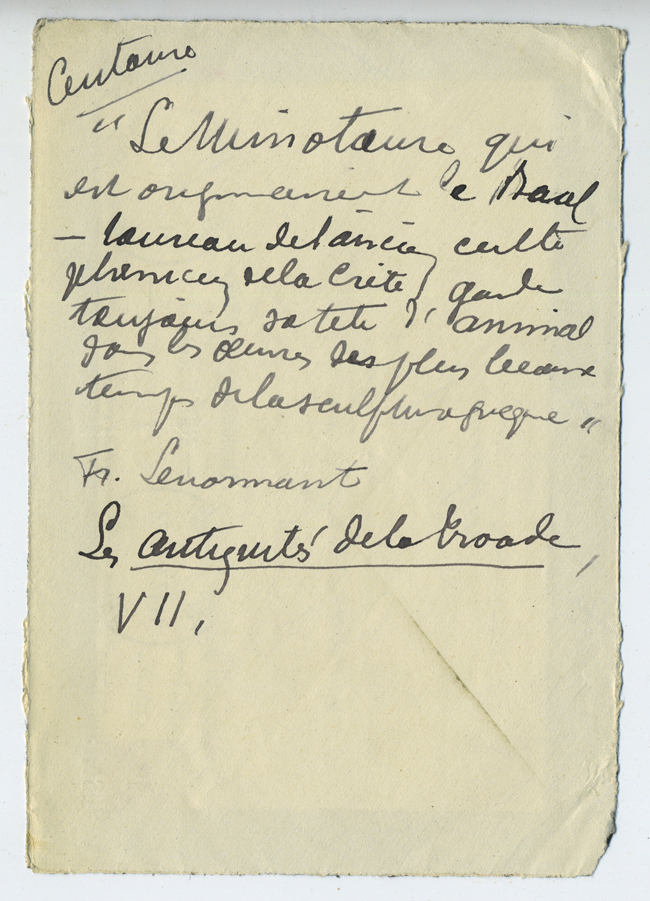 Centaure
"Le Minotaure qui
est originairement le Baal
– taureau de l'ancien culte
phenicien de la Crète, garde
toujours sa tête d'animal
dans les œuvres des plus beaux
temps de la sculpture grecque"
Fr. Lenormant
Les antiquités de la Troade,
VII,